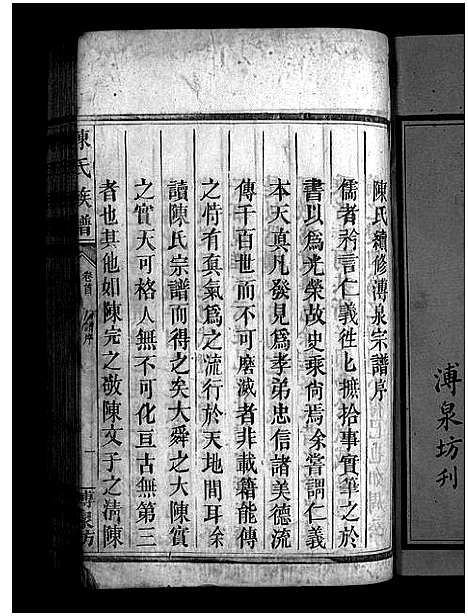 溥泉坊刊
陳氏續修溥泉宗譜序
儒者矜言仁義徃匕摭拾事實筆之於
書以爲光榮故史乘尙焉余嘗謂仁義
本天真凡發見爲孝弟忠信諸美德流
傳千百世而不可磨滅者非載籍能傳
之恃有真氣爲之流行於天地間耳余
讀陳氏宗譜而得之矣大舜之大陳實
之實天可格人無不可化亘古無第二
者也其他如陳完之敬陳文子之清陳
陳氏族譜
卷首
序
一
溥泉坊